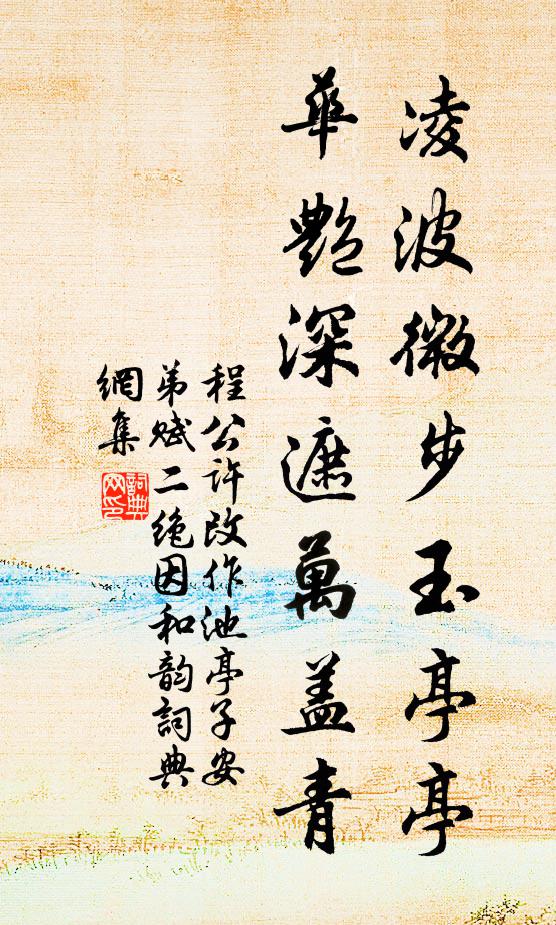 凌波微步玉亭亭
華艷深遮萬盖青
程公许改作池亭子安
弟赋二绝因和韵詞典
網集
詞典
网印